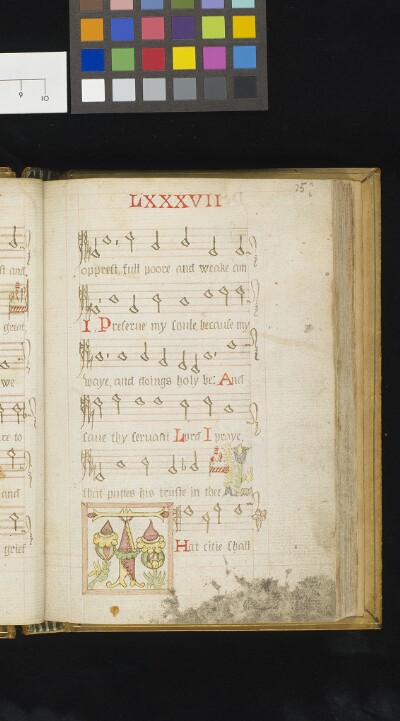 9 10
LXXXVII
opprest, full poore and weake am
I. Preserue my soule, because my
waye, and doings holy be: And
saue thy seruant Lord I praye,
that puttes his truste in thee
That citie shall
st and
great
we
to
and
grief